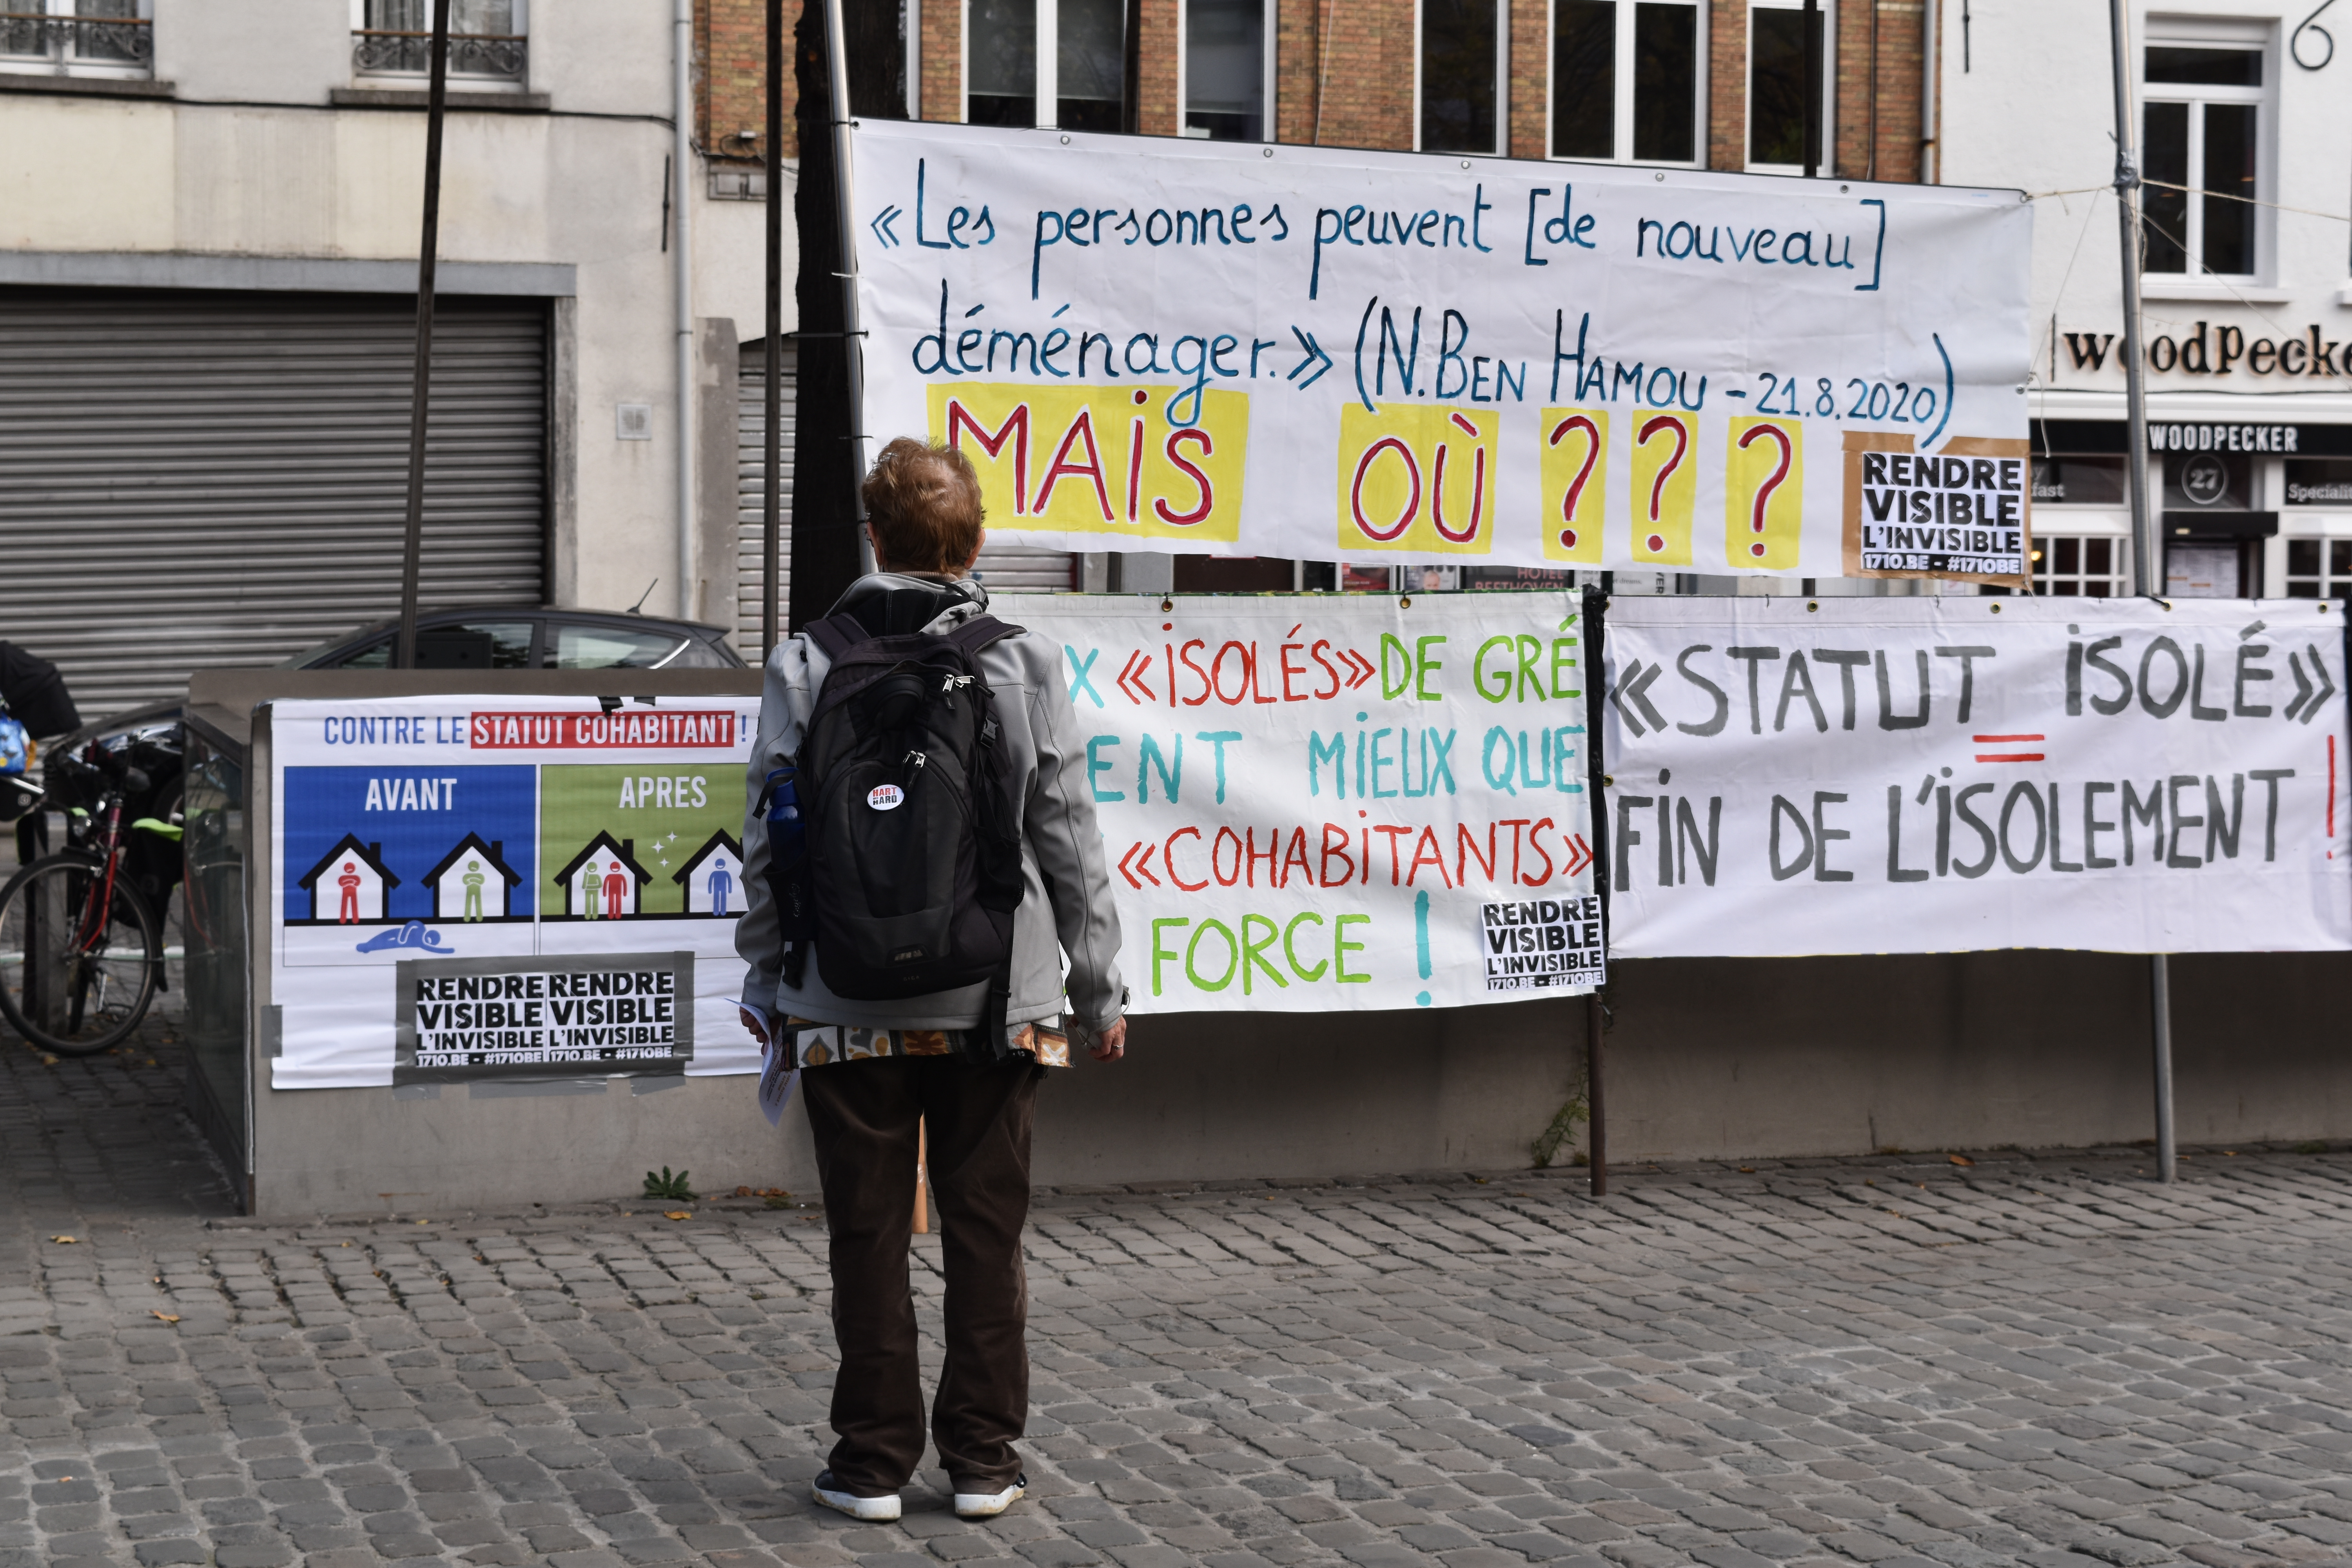 « Les personnes peuvent [de nouveau]
déménager. » (N. BEN HAMOU - 21.8.2020)
MAIS OÙ ? ? ?
RENDRE
VISIBLE
L'INVISIBLE
1710.BE - #1710BE
woodpecke
WOODPECKER
27
fast
Speciali
HOTEL
BEETHOVEN
CONTRE LE STATUT COHABITANT !
AVANT
APRES
RENDRE
VISIBLE
L'INVISIBLE
1710.BE - #1710BE
RENDRE
VISIBLE
L'INVISIBLE
1710.BE - #1710BE
HART
HARD
X « ISOLÉS » DE GRÉ
ENT MIEUX QUE
« COHABITANTS »
FORCE !
RENDRE
VISIBLE
L'INVISIBLE
1710.BE - #1710BE
« STATUT ISOLÉ »
=
FIN DE L'ISOLEMENT !